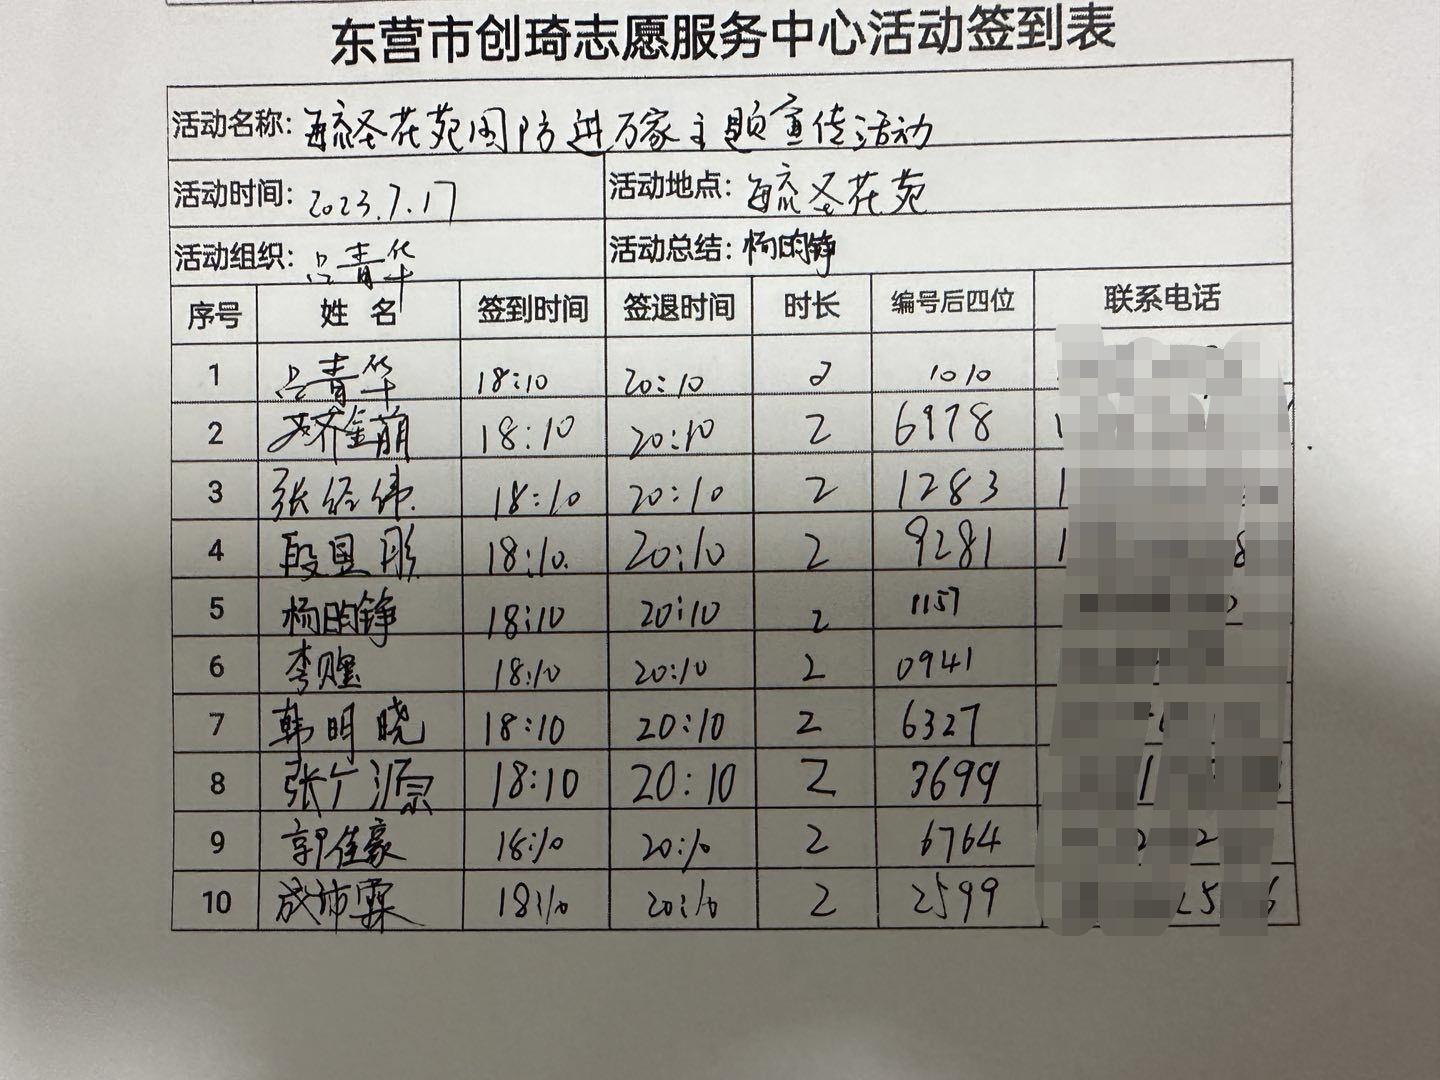 东营市创琦志愿服务中心活动签到表
活动名称: 毓圣花苑国防进万家主题宣传活动
活动时间: 2023.7.17 活动地点: 毓圣花苑
活动组织: 吕青华 活动总结: 杨昀铮
序号 姓名 签到时间 签退时间 时长 编号后四位 联系电话
1 吕青华 18:10 20:10 2 1010
2 18:10 20:10 2 6978
3 张经伟 18:10 20:10 2 1283
4 段昱彤 18:10. 20:10 2 9281
5 杨昀铮 18:10 20:10 2 1157
6 李 18:10 20:10 2 0941
7 韩明晓 18:10 20:10 2 6327
8 张广源 18:10 20:10 2 3699
9 郭佳豪 18:10 20:10 2 6764
10 成沛霖 18:10 20:10 2 2599